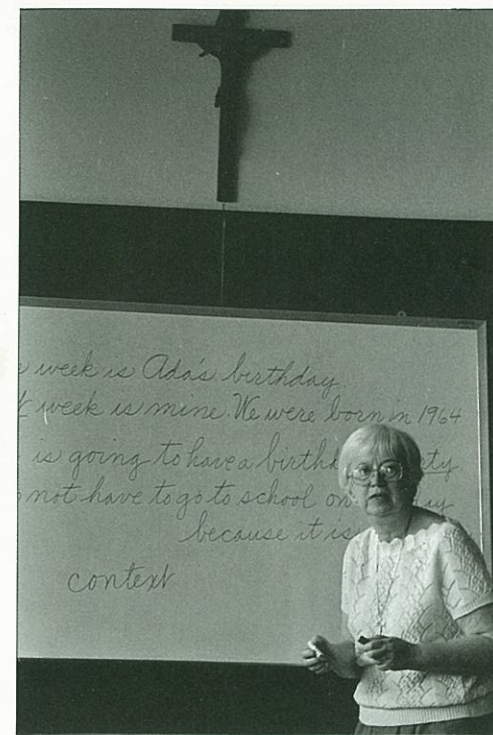 week is Ada's birthday
week is mine. We were born in 1964
is going to have a
not have to go to school on
because it is
context